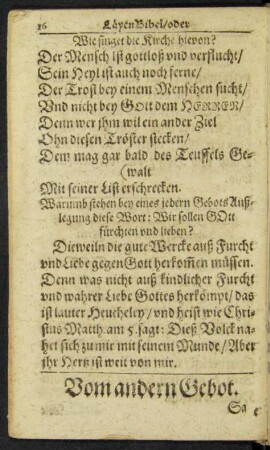 16 Läyen Bibel/oder
Wie singet die Kirche hievon?
Der Mensch ist gottloß vnd verflucht/
Sein Heyl ist auch noch ferne/
Der Trost bey einem Menschen sucht/
Vnd nicht bey GOtt dem HERREN/
Denn wer jhm wil ein ander Ziel
Ohn diesen Tröster stecken/
Dem mag gar bald des Teuffels Ge-
(walt
Mit seiner List erschrecken.
Warumb stehen bey eines jedern Gebots Auß-
legung diese Wort: Wir sollen GOtt
fürchten vnd lieben?
Dieweiln die gute Wercke auß Furcht
vnd Liebe gegen Gott herkommen müssen.
Denn was nicht auß kindlicher Furcht
vnd wahrer Liebe Gottes herkömpt/ das
ist lauter Heucheley/ vnd heist wie Chri-
stus Matth. am 5. sagt: Dieß Volck na-
het sich zu mir mit seinem Munde/ Aber
jhr Hertz ist weit von mir.
Vom andern Gebot.